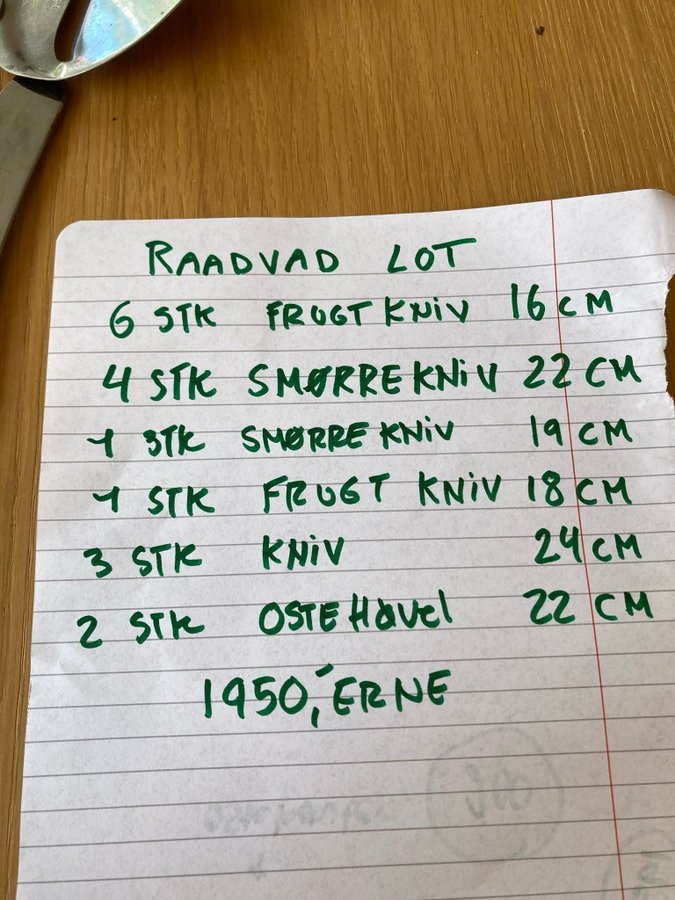 RAADVAD LOT
6 STK FRUGT KNIV 16 CM
4 STK SMØRREKNIV 22 CM
1 STK SMØRREKNIV 19 CM
1 STK FRUGT KNIV 18 CM
3 STK KNIV 24 CM
2 STK OSTEHØVEL 22 CM
1950,'ERNE